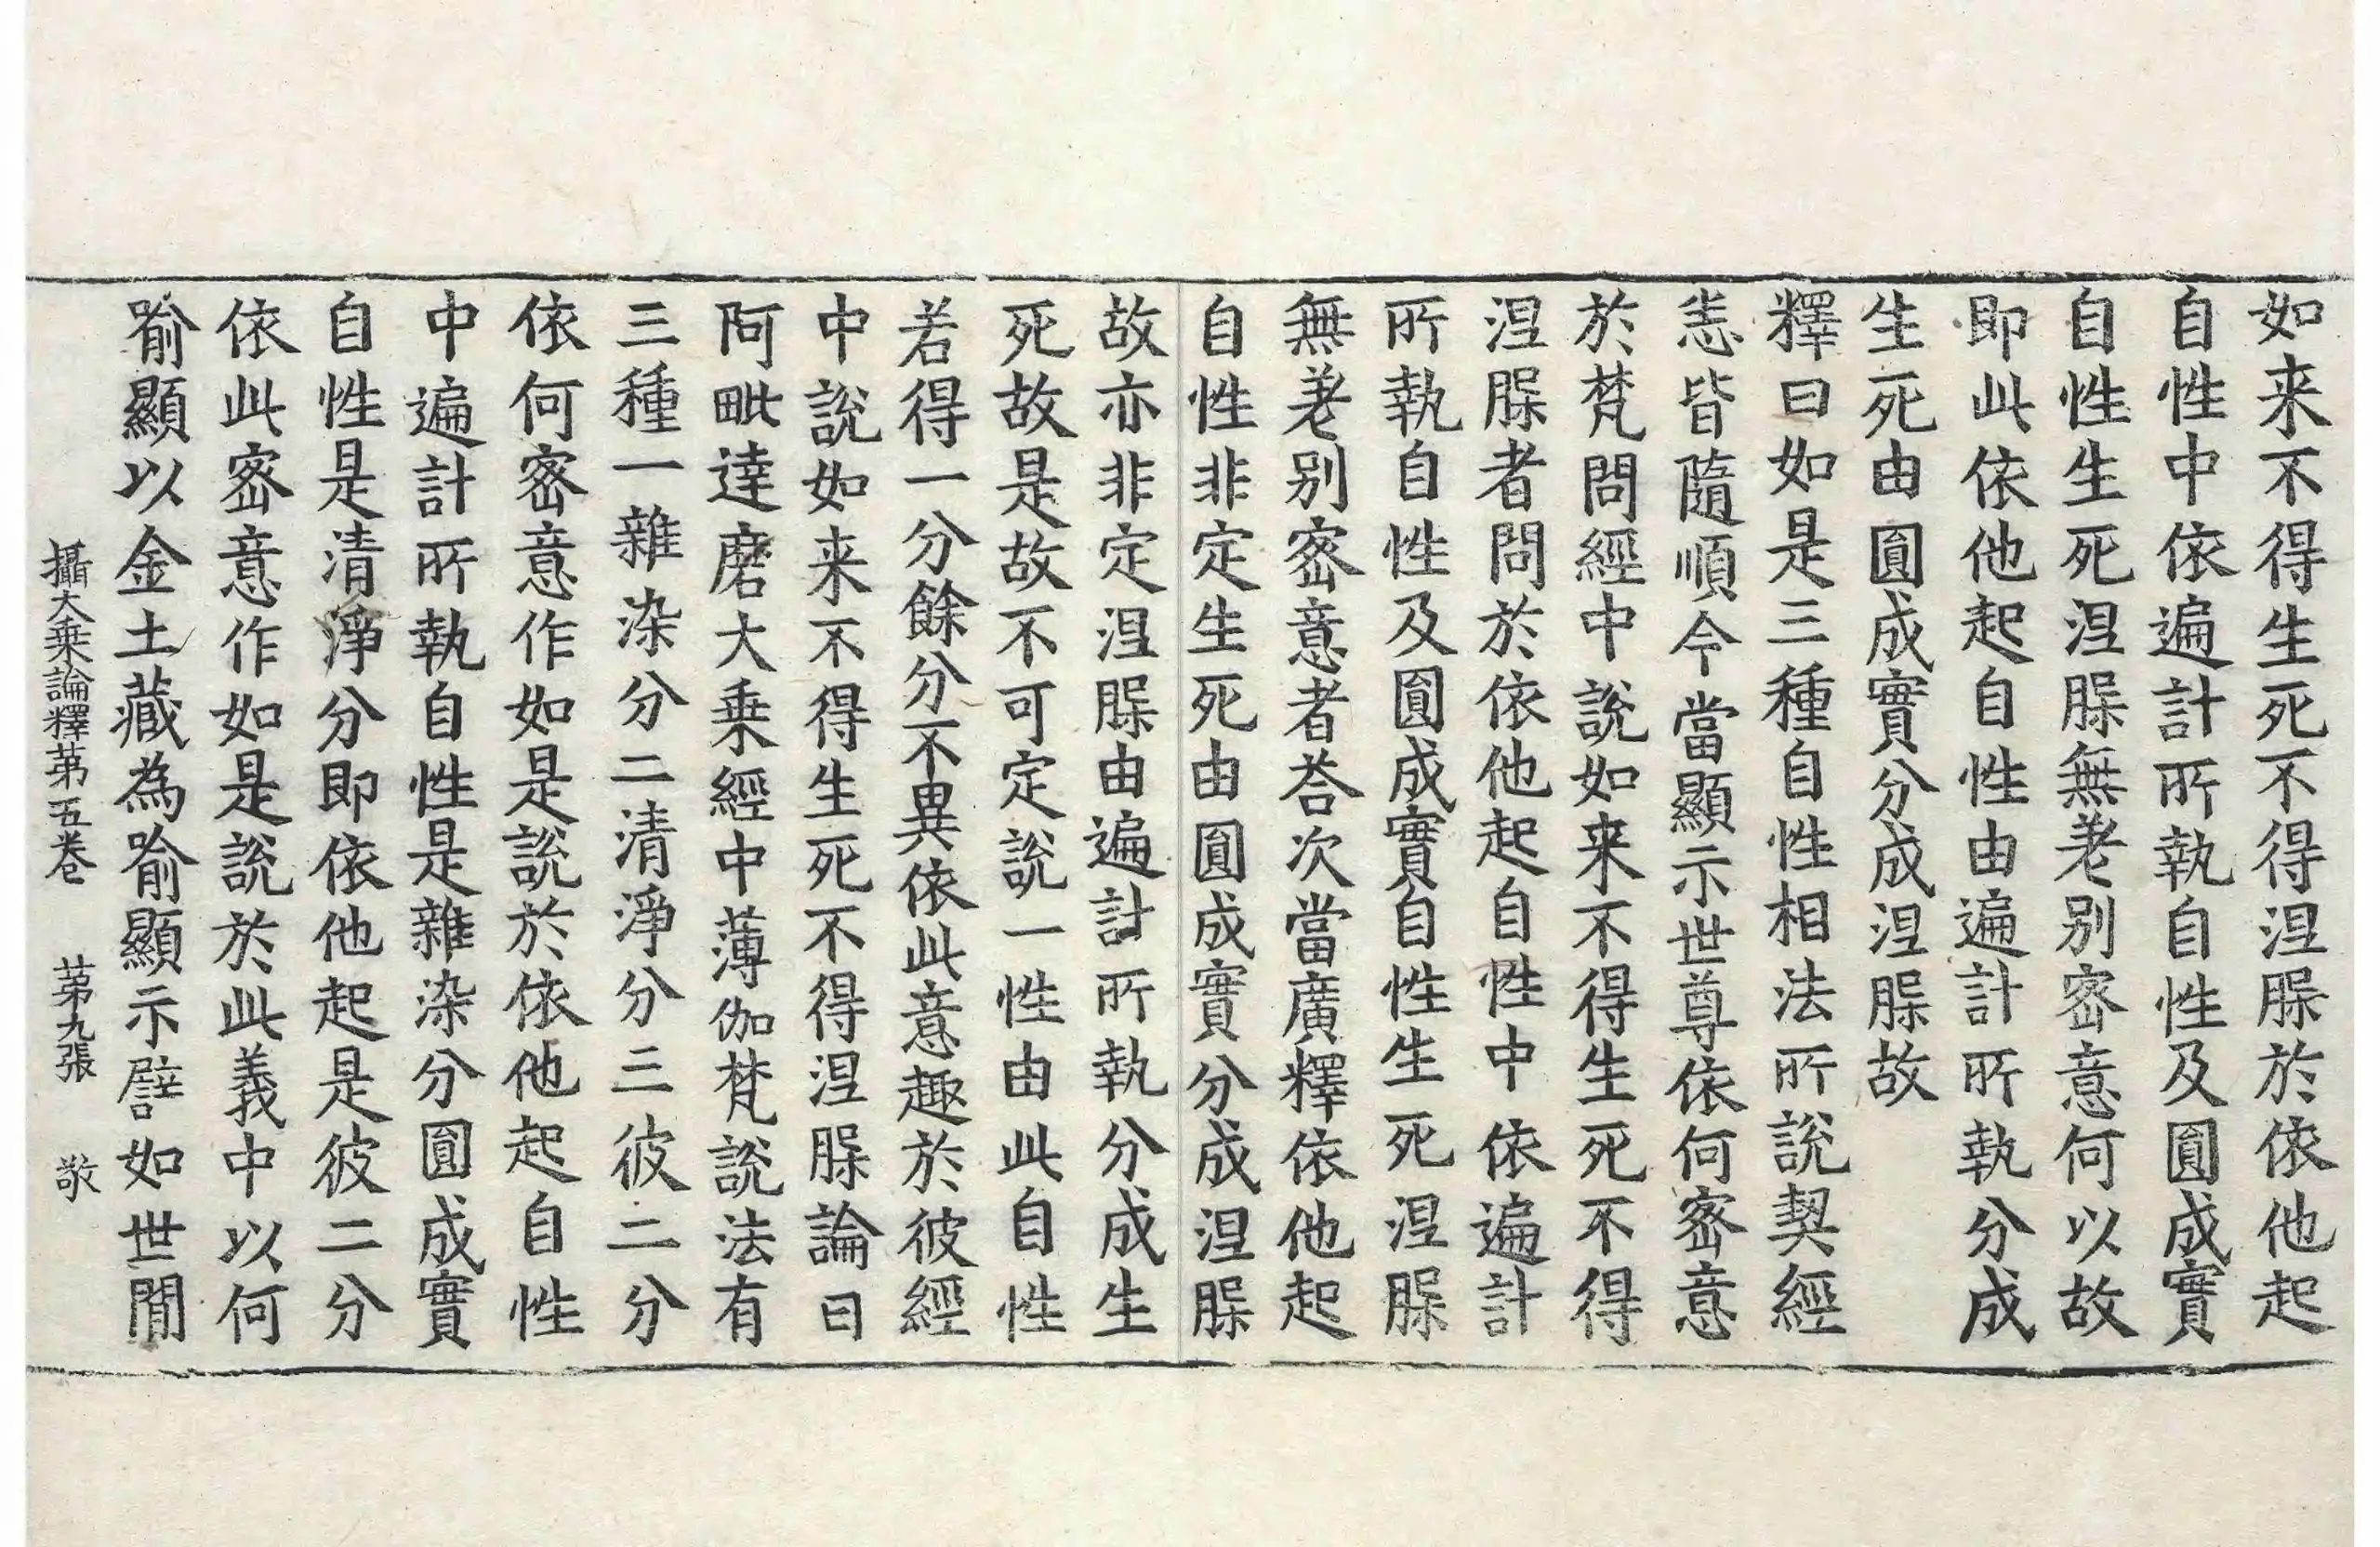 如来不得生死不得涅脲於依他起
自性中依遍計所執自性及圓成實
自性生死涅脲無差別密意何以故
即此依他起自性由遍計所執分成
生死由圓成實分成涅脲故
釋曰如是三種自性相法所說契經
恚皆隨順今當顯示世尊依何密意
於梵問經中說如来不得生死不得
涅脲者問於依他起自性中依遍計
所執自性及圓成實自性生死涅脲
無差別密意者荅次當廣釋依他起
自性非定生死由圓成實分成涅脲
故亦非定涅脲由遍計所執分成生
死故是故不可定說一性由此自性
若得一分餘分不異依此意趣於彼經
中說如来不得生死不得涅脲論曰
阿毗達磨大乗經中薄伽梵說法有
三種一雜染分二清淨分三彼二分
依何密意作如是說於依他起自性
中遍計所執自性是雜染分圓成實
自性是清淨分即依他起是彼二分
依此密意作如是說於此義中以何
喻顯以金土藏為喻顯示譬如世閒
攝大乗論釋苐五卷 苐九張 敬